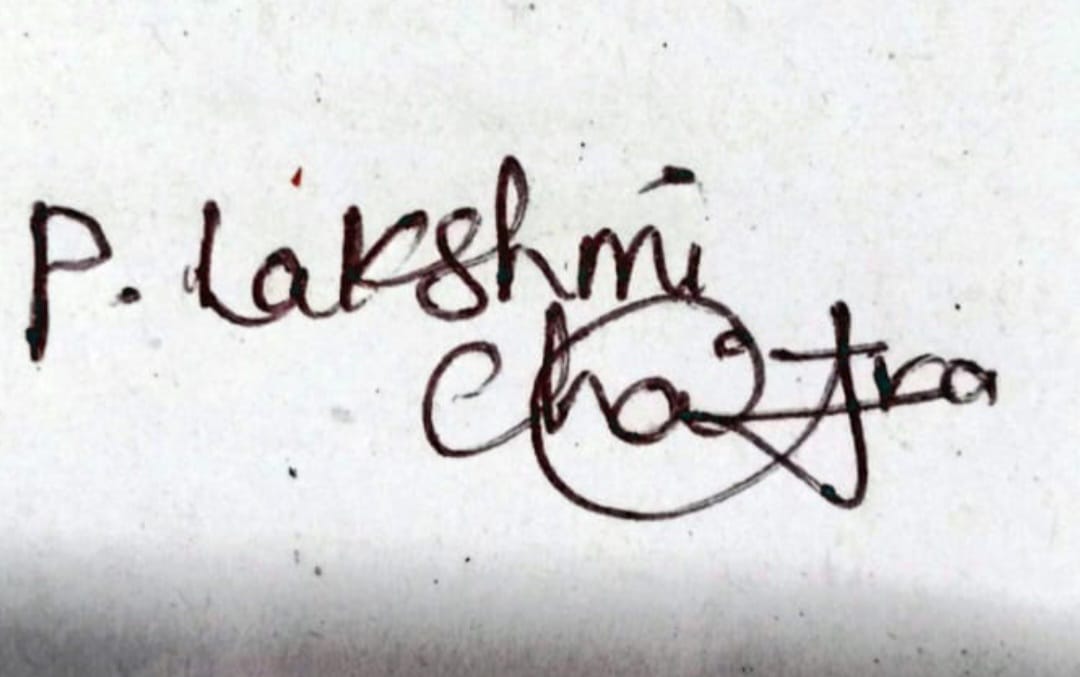 P. Lakshmi
Chaitra